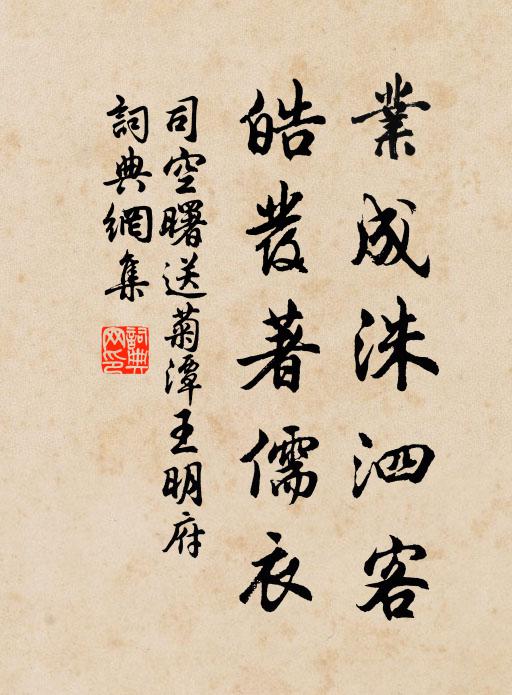 業成洙泗客
皓發著儒衣
司空曙送菊潭王明府
詞典網集
詞典網印